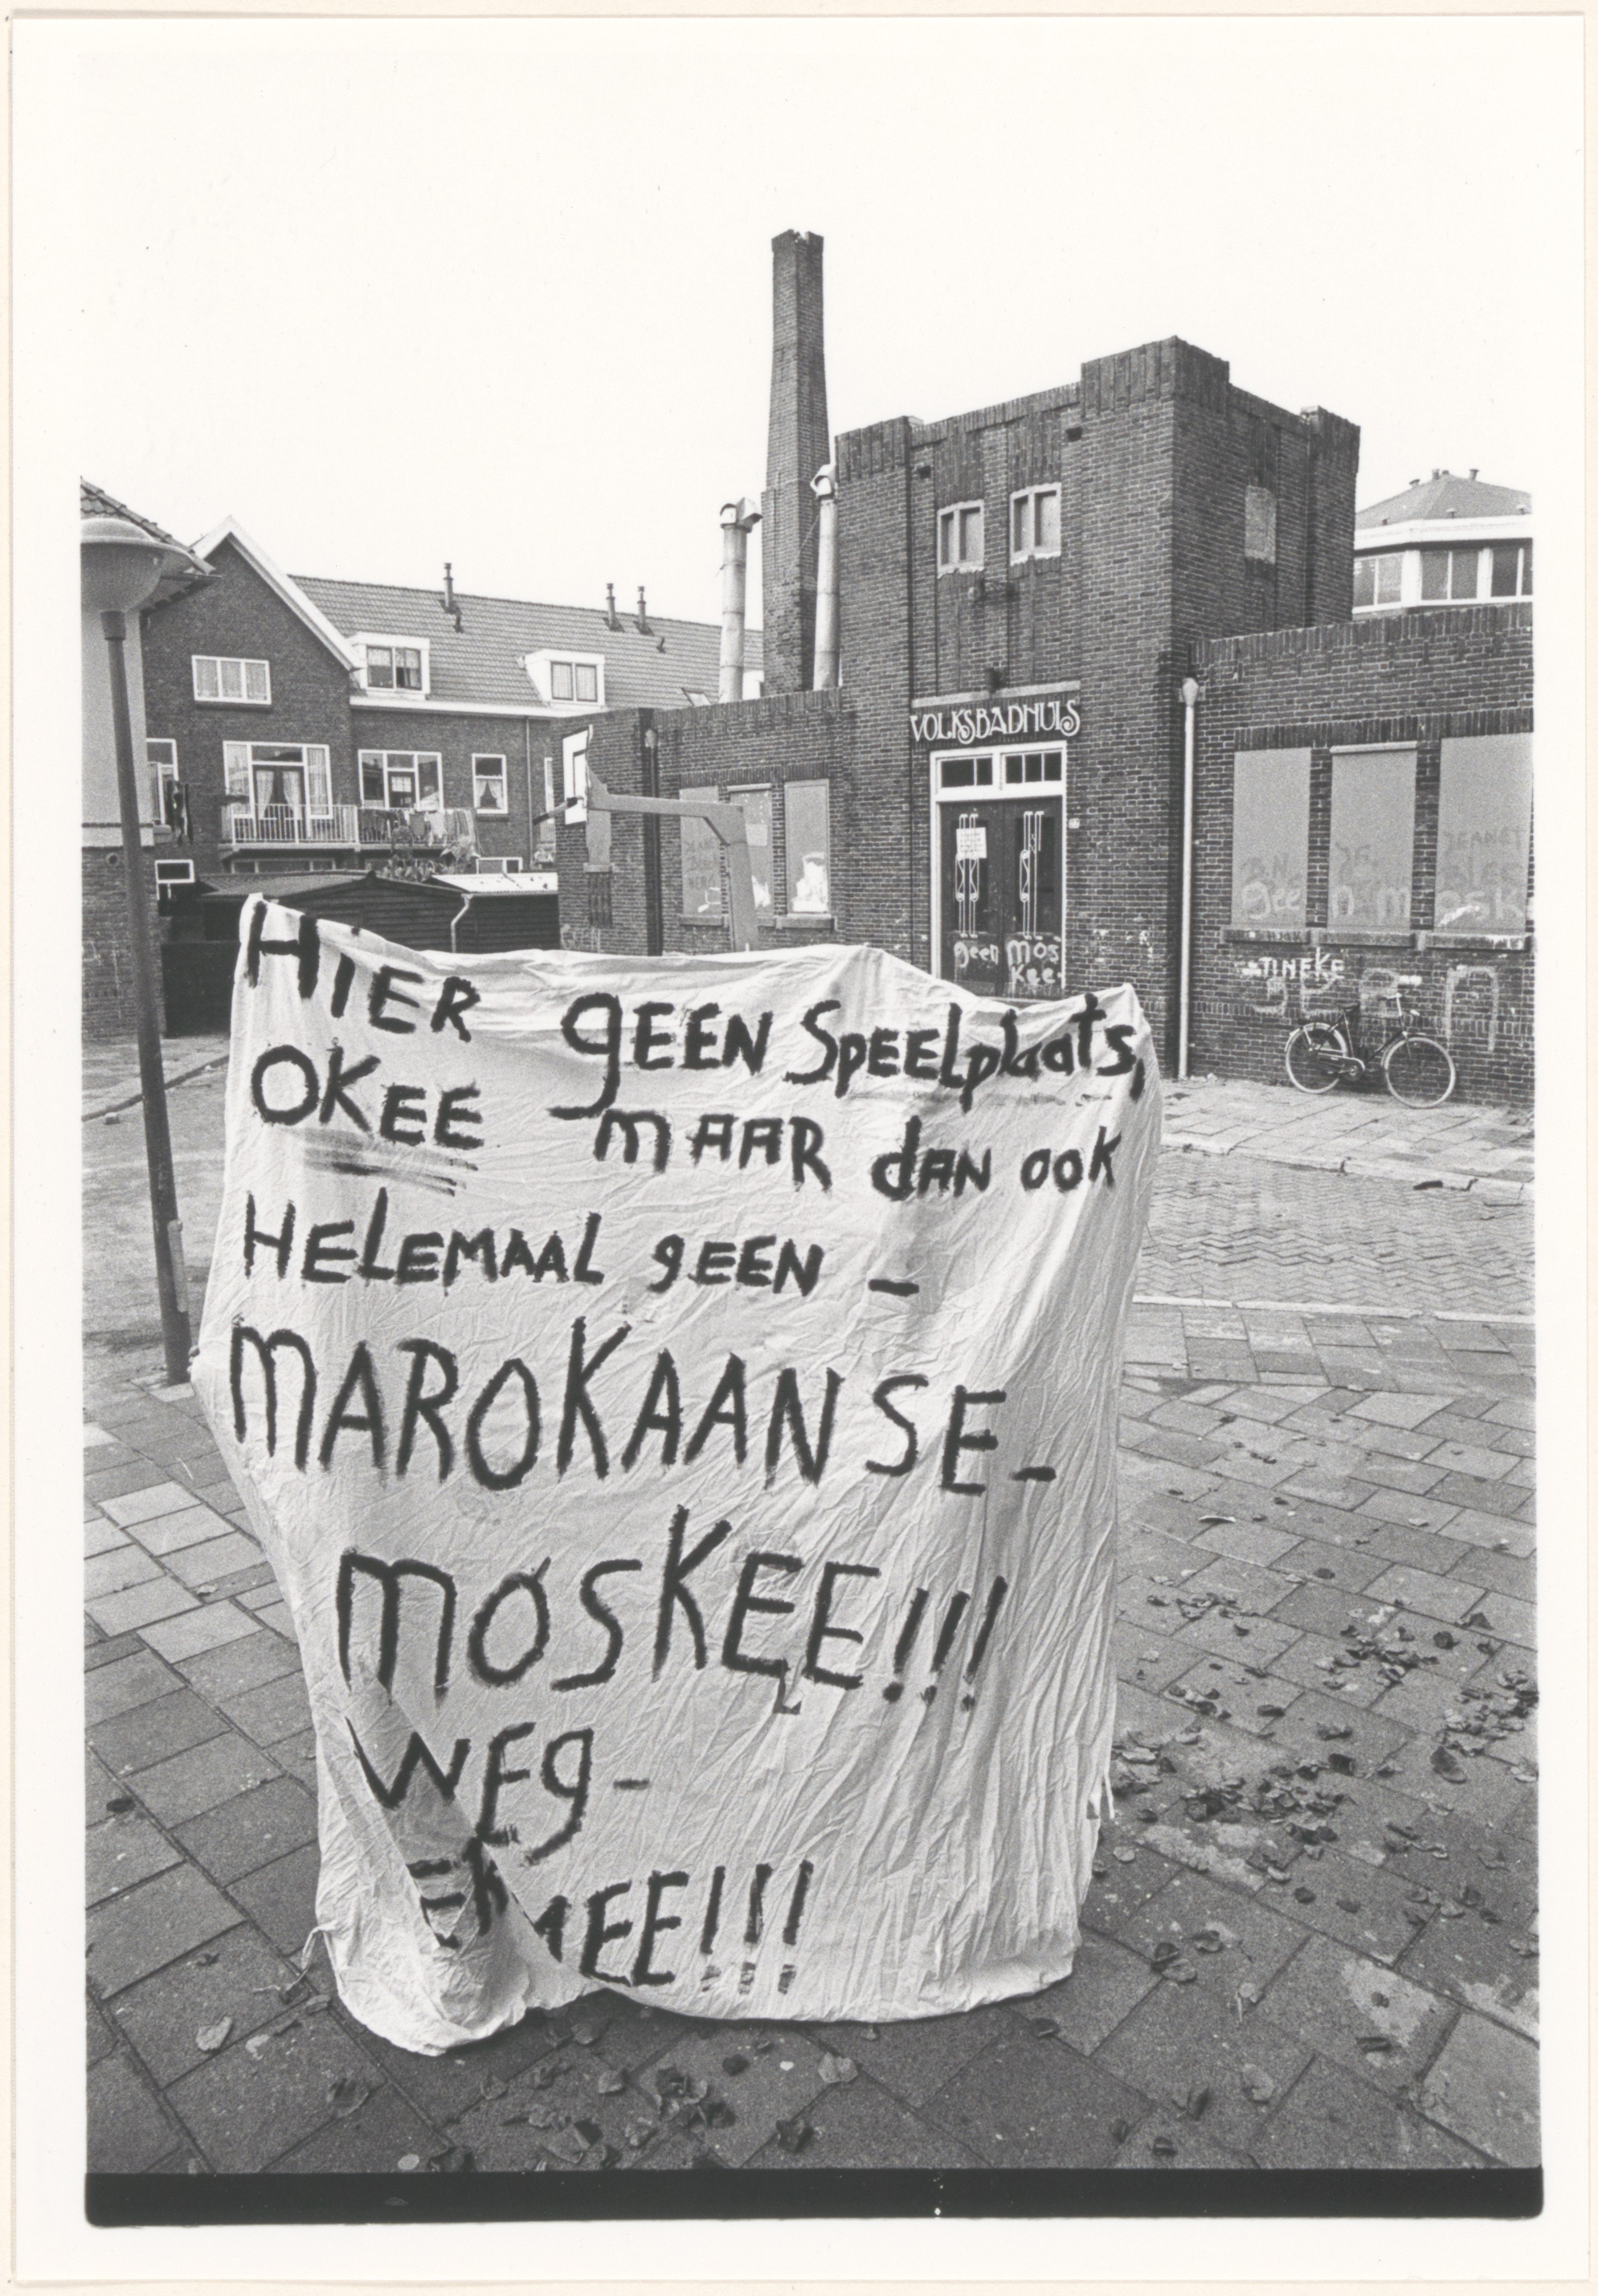 VOLKSBADHUIS
geen mos
kee
TINEKE
HiER gEEN SpEELplaats,
OKEE mAAR dAN OOK
HELEMAAL gEEN –
MAROKAANSE–
MOSKEE!!!
WEg–
MEE!!!